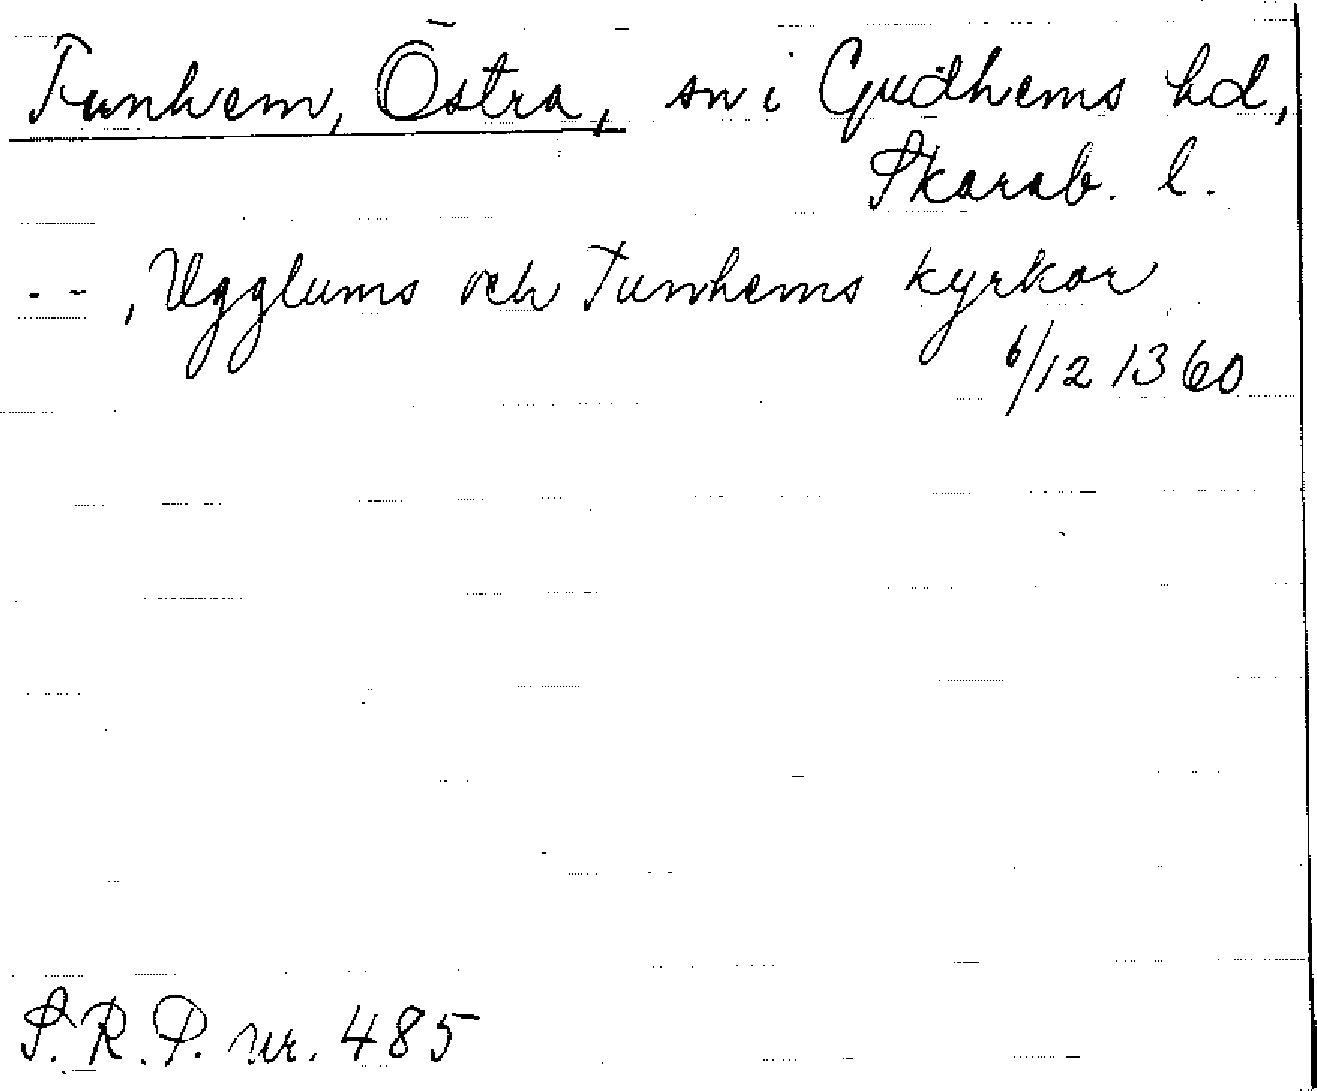 Tunhem, Östra, sn i Gudhems hd,
Skarab. l.
- - , Ugglums och Tunhems kyrkor
6/12 1360
S.R.P. nr. 485